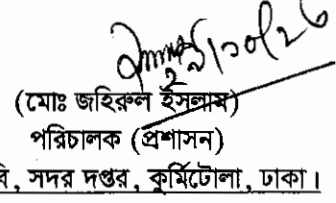 ২৯/১০/২৫
(মোঃ জহিরুল ইসলাম)
পরিচালক (প্রশাসন)
বি, সদর দপ্তর, কুর্মিটোলা, ঢাকা।